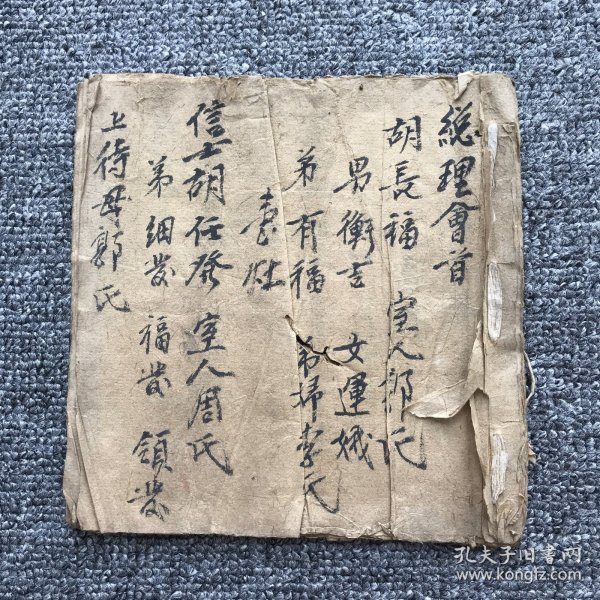 総理會首
胡長福 室人郭氏
男衡吉 女運娥
弟有福 弟婦李氏
信士胡任發 室人周氏
弟細發 福發 領發
上待母郭氏
孔夫子旧书网
www.kongfz.com